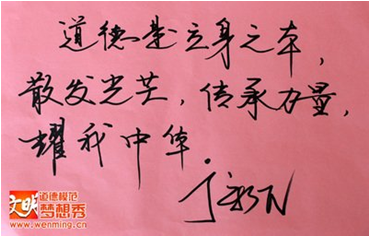 道德是立身之本，
散发光芒，传承力量，
耀我中华
文明
道德模范
梦想秀
www.wenming.cn